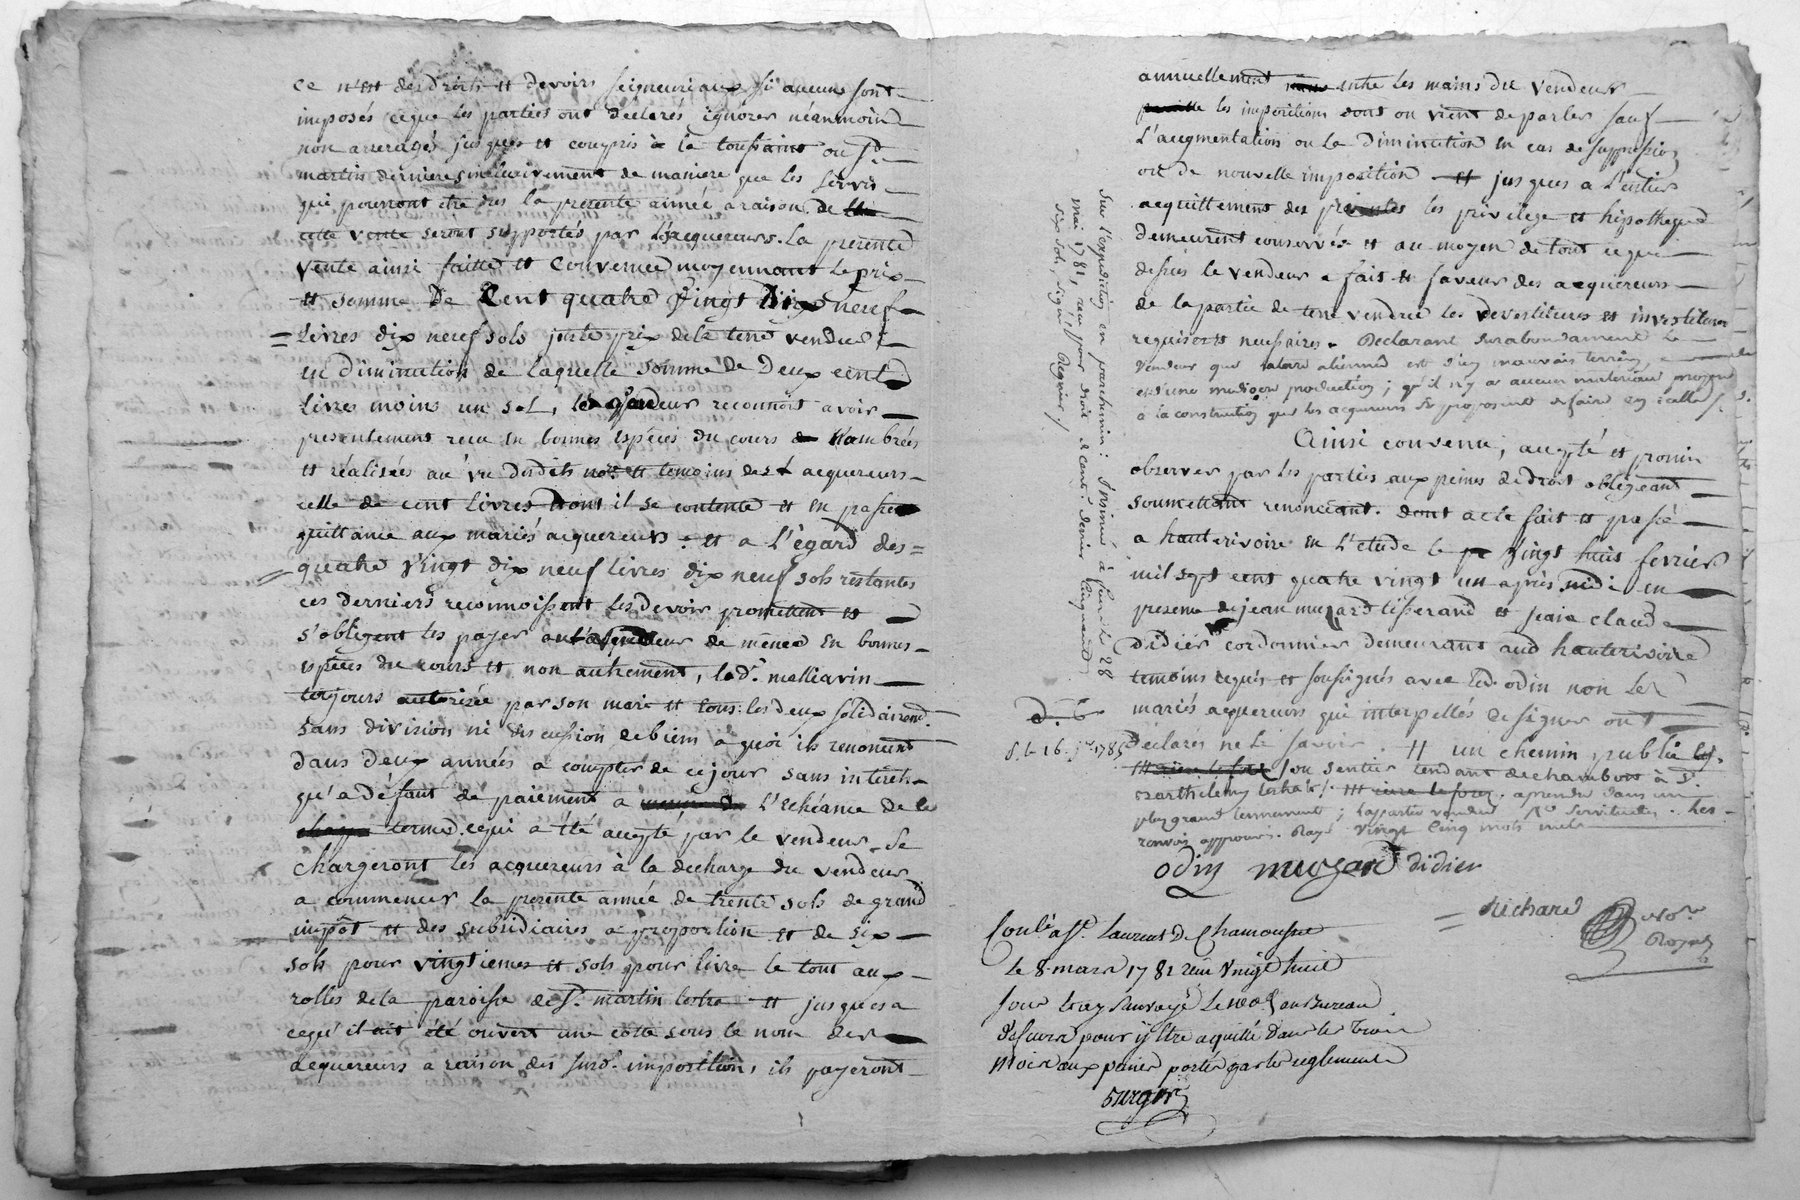 ce n'est des droits et devoirs seigneuriaux si aucuns sont
imposés ce que les parties ont déclarés ignorer néanmoins
non arreragés jusques et compris à la toussaint ou St
martin dernieres inclusivement de maniere que les servis
qui pourront etre dus la presente année a raison de
cette vente seront supportés par les acquereurs. La presente
vente ainsi faitte et convenue moyennant le prix
et somme De Cent quatre Vingt Dix neuf
livres dix neuf sols juste prix de la terre vendue
en diminution de laquelle somme de Deux cent
livres moins un sol, le vendeur reconnoit avoir
presentement recu en bonnes espèces du cours nombrées
et réalisées au vu desdits nore et temoins des acquereurs
celle de cent livres dont il se contente et en passe
quittance aux mariés acquereurs. et a l'égard des
quatre vingt dix neuf livres dix neuf sols restantes
ces derniers reconnoissent les devoir promettent et
s'obligent les payer au vendeur de même en bonnes
espèces du cours et non autrement, lad. melliarin
toujours autorisée par son mari et tous les deux solidairemt
sans division ni discussion de biens a quoi ils renoncent
dans deux années a compter de ce jour sans interets
qu'a défaut de paiement a l'echéance de le
terme. ce qui a été accepté par le vendeur. Se
chargeront les acquereurs à la decharge du vendeur
a commencer la presente année de trente sols de grand
impôt et des subsidiaires a proportion et de six
sols pour vingtiemes et sols pour livre le tout aux
rolles de la paroisse de St. martin lestra et jusques a
ce qu'il ait été ouvert une cotte sous le nom des
acquereurs a raison des susd. imposition, ils payeront
annuellement entre les mains du vendeur
les impositions dont on vient de parler sauf
l'augmentation ou la diminution en cas de suppression
ou de nouvelle imposition et jusques a l'entier
acquittement des les privilege et hipotheque
demeurent conservés et au moyen de tout ce que
dessus le vendeur a fait et faveur des acquereurs
de la partie de terre vendue les devestitures et investitures
requises et necessaires. Declarant surabondamment le
vendeur que aliennée est d'un mauvais terrein
et d'une mediocre production; qu'il n'y a aucun materiaux propre
à la construction que les acquereurs se proposent de faire en icelle
Ainsi convenu, accepté et promis
observer par les parties aux peines de droit obligeant
soumettant renonciant. dont acte fait et passé
a hauterivoire en l'etude le vingt huit fevrier
mil sept cent quatre vingt un après midi en
presence de jean muzard tisserand et jean claude
Didier cordonnier demeurans aud hauterivoire
temoins requis et soussignés avec led. odin non les
mariés acquereurs qui interpellés de signer ont
déclarés ne le savoir. # un chemin public
ou sentier tendant de chambost à St
barthelemy lestra /. apendre dans un
plus grand tennement; servitudes. Les
renvois approuvés. Rayé vingt cinq mots nuls
odin muzard didier
Richard Nore
Royal
Conle a St. Laurent De Chamousset
le 8 mars 1781 recu vingt huit
sous au Bureau
de feurs pour y être aquitté Dans les trois
mois aux peines portés par les reglements
surgir
Sur l'expedition en parchemin: Insinué à feurs le 28
mai 1781, recu pour droit de cent. denier
six sols, signé Regnier /
d. 16
1785